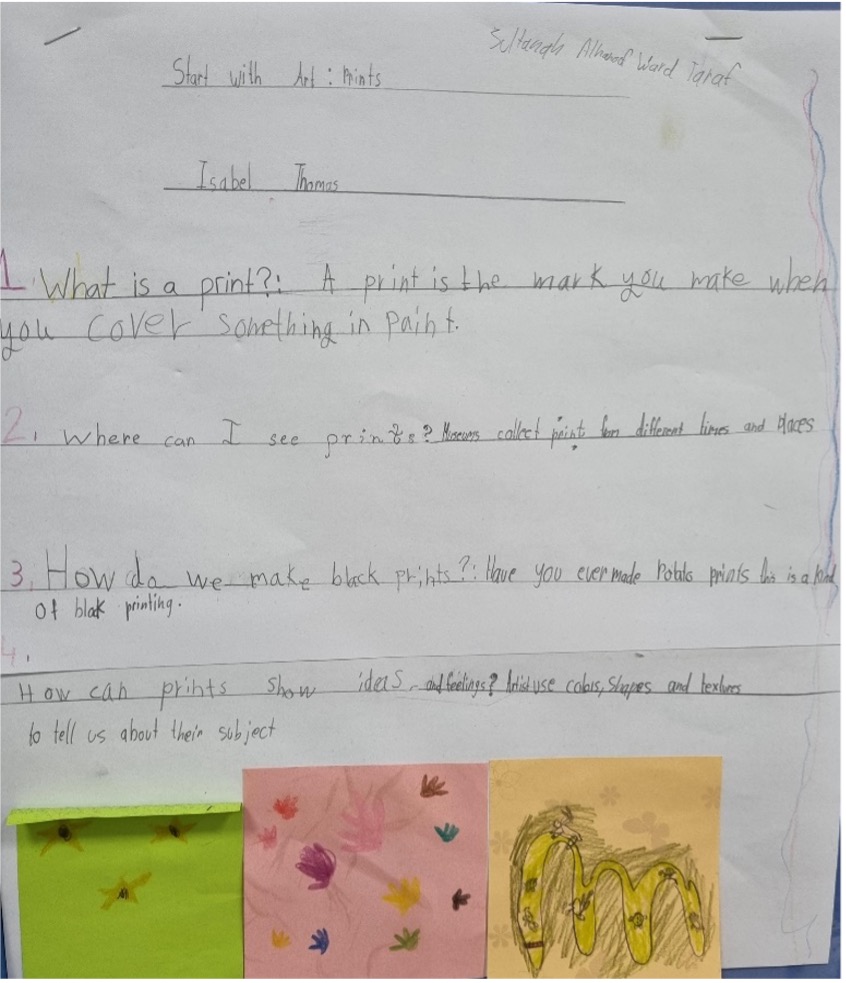 Sultanah Ward Taraf
Start with Art : Prints
Isabel Thomas
1. What is a print?: A print is the mark you make when
you cover something in paint.
2. Where can I see prints? Museums collect print from different times and places
3. How do we make black prints?: Have you ever made Potato prints this is a kind
of blak printing.
4.
How can prints show ideas and feelings? Artist use colors, shapes and textures
to tell us about their subject